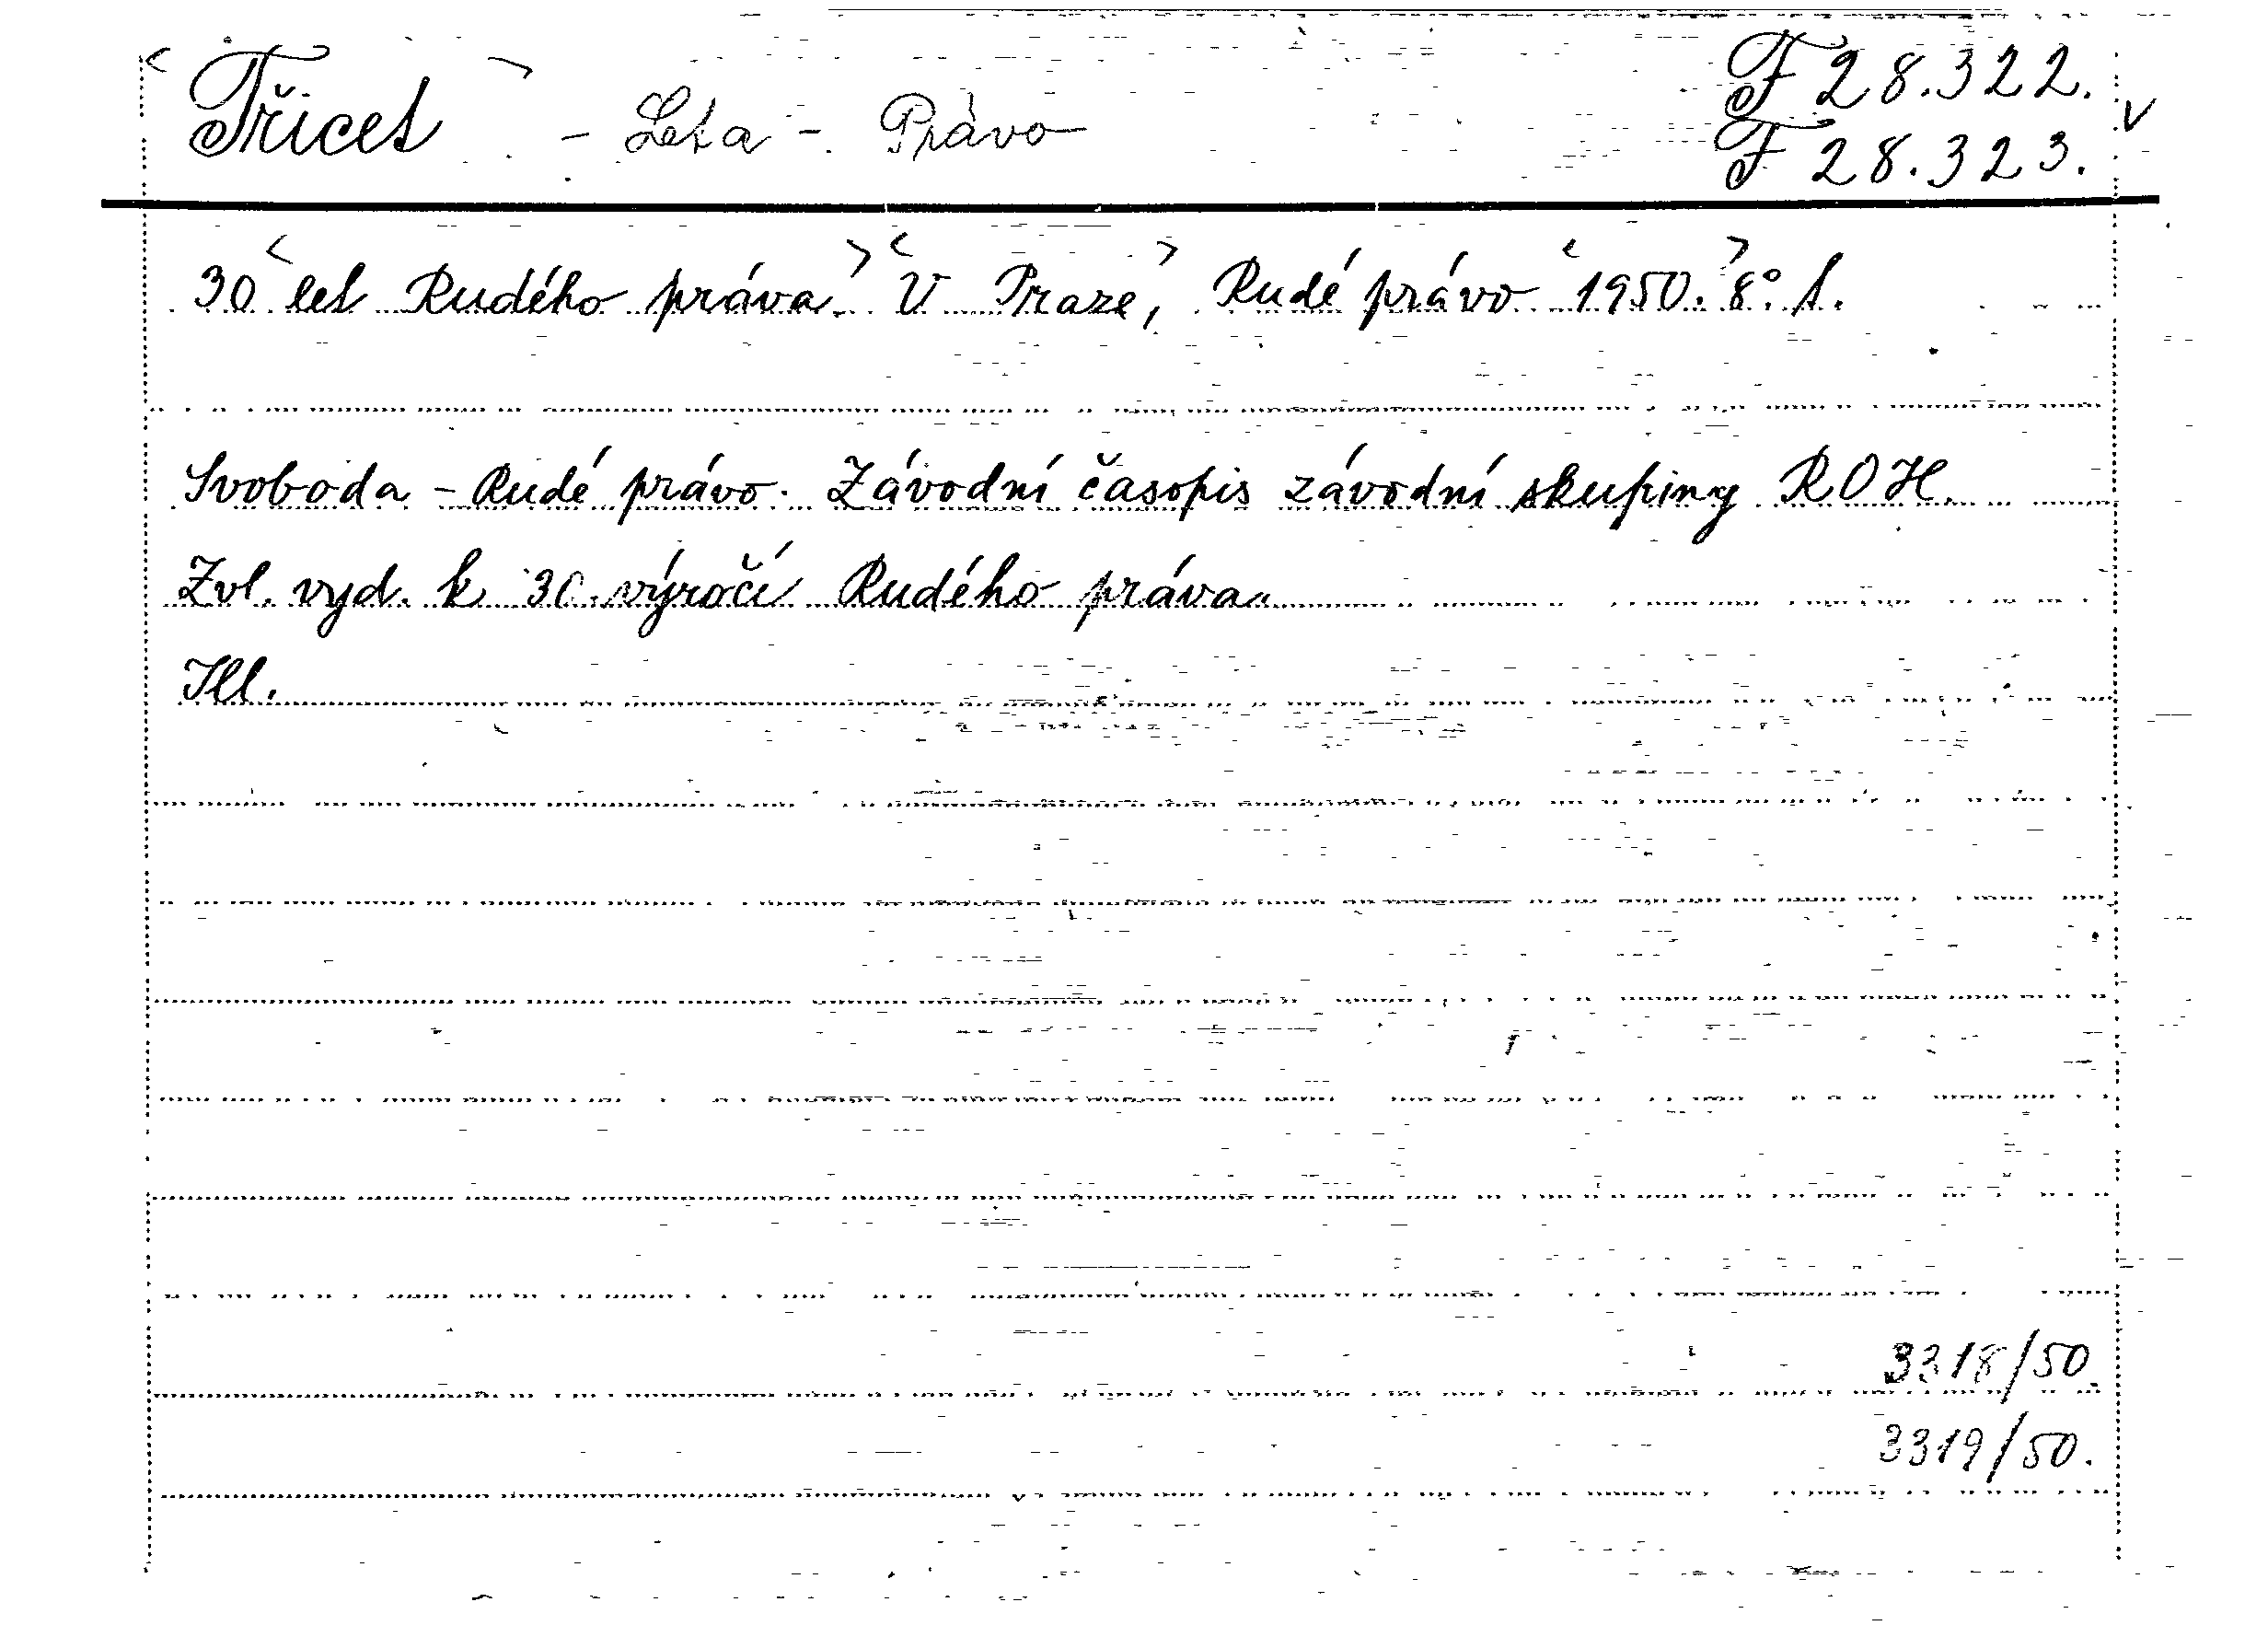 Třicet - Leta - Právo F 28.322.
F 28.323.
30 let Rudého práva. V Praze, Rudé právo 1950. 8°. 1.
Svoboda - Rudé právo. Závodní časopis závodní skupiny ROH.
Zvl. vyd. k 30. výročí Rudého práva.
Ill.
3318/50.
3319/50.